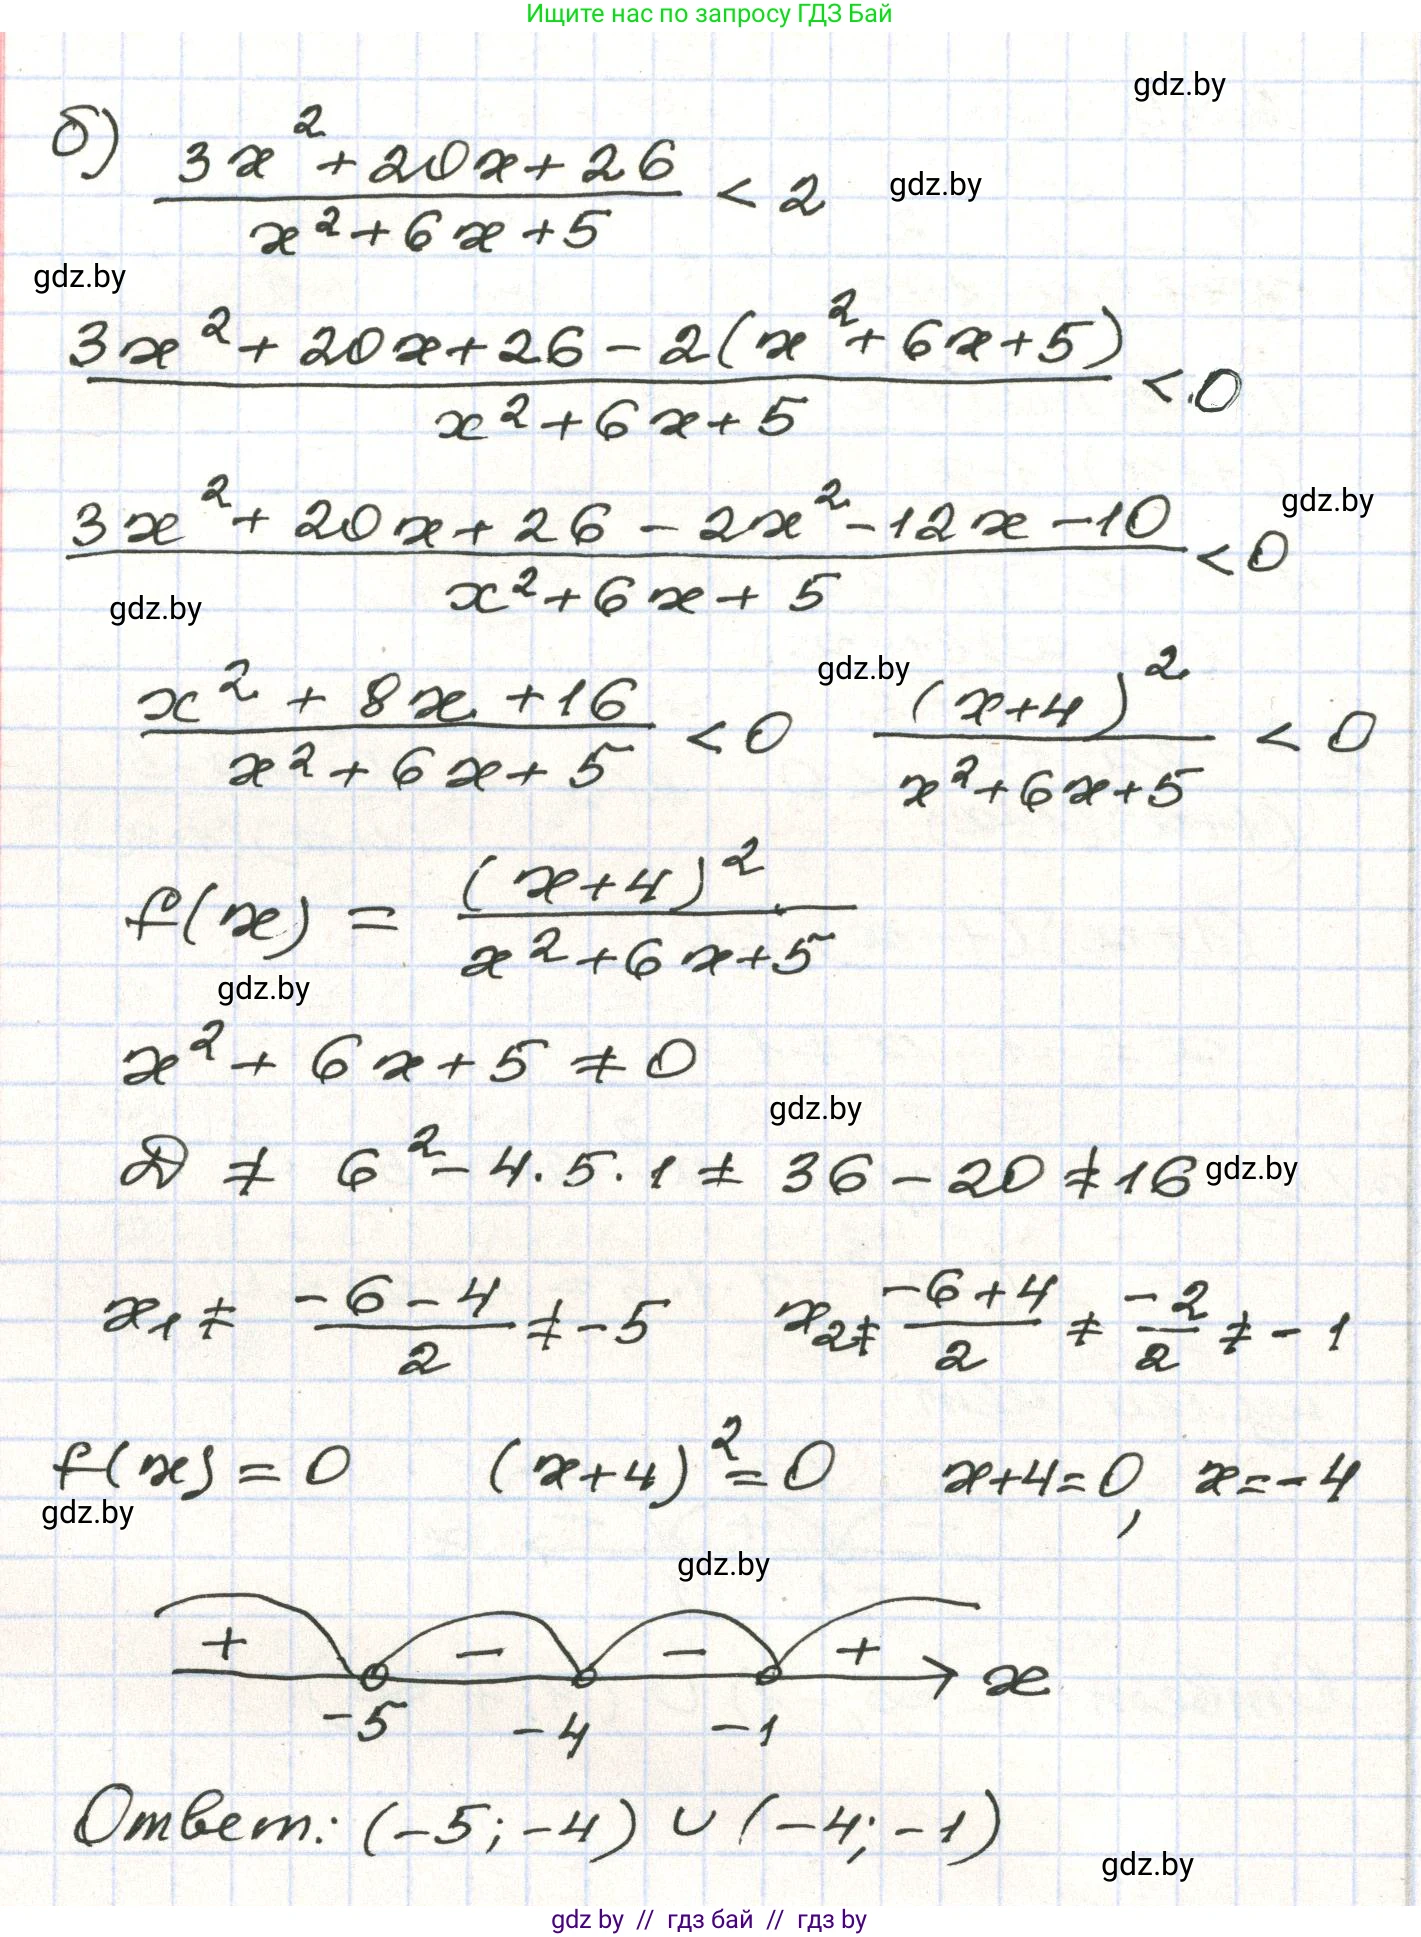 Ищите нас по запросу ГДЗ Бай
gdz.by
б) (3x² + 20x + 26)/(x² + 6x + 5) < 2
gdz.by
gdz.by
(3x² + 20x + 26 - 2(x² + 6x + 5))/(x² + 6x + 5) < 0
(3x² + 20x + 26 - 2x² - 12x - 10)/(x² + 6x + 5) < 0
gdz.by
gdz.by
(x² + 8x + 16)/(x² + 6x + 5) < 0 (x+4)²/(x² + 6x + 5) < 0
gdz.by
f(x) = (x+4)²/(x² + 6x + 5)
gdz.by
x² + 6x + 5 ≠ 0
gdz.by
D ≠ 6² - 4·5·1 ≠ 36 - 20 ≠ 16
gdz.by
x₁ ≠ (-6-4)/2 ≠ -5 x₂ ≠ (-6+4)/2 ≠ -2/2 ≠ -1
f(x) = 0 (x+4)² = 0 x+4=0, x=-4
gdz.by
gdz.by
+ - - + x
-5 -4 -1
Ответ: (-5; -4) ∪ (-4; -1)
gdz.by
gdz by // гдз бай // гдз by